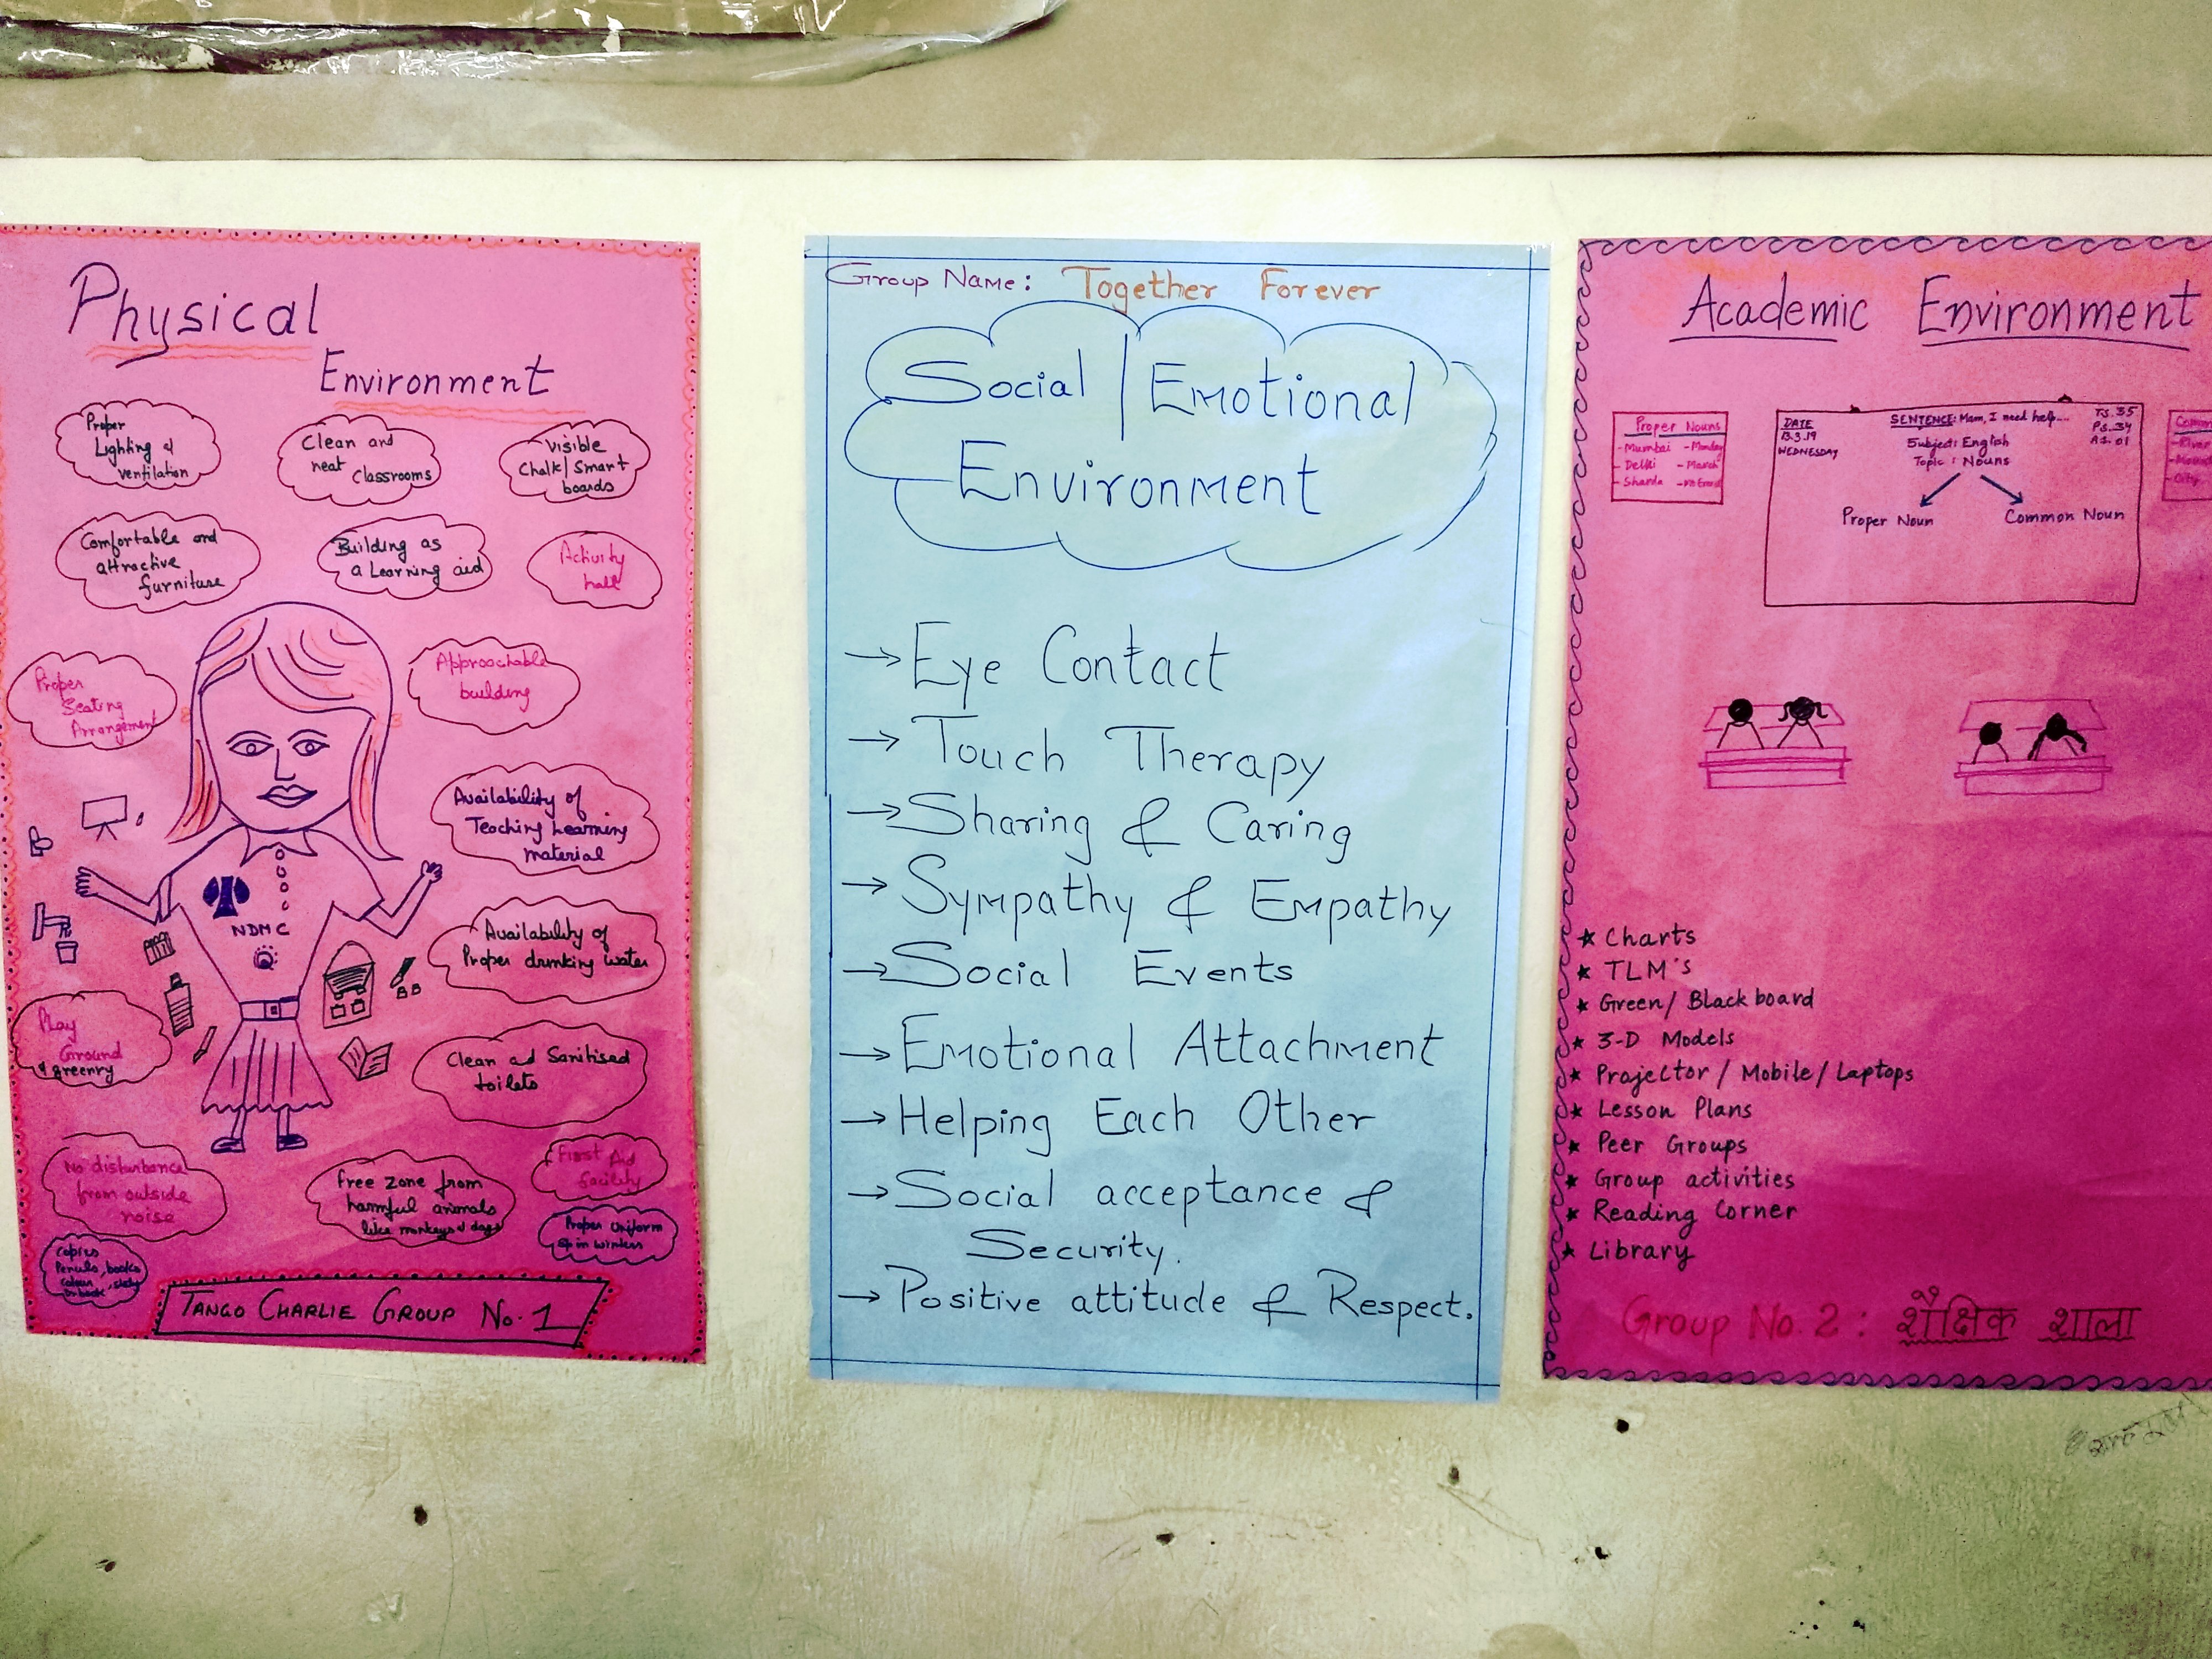 Physical
Environment
Proper
Lighting &
ventilation
Clean and
neat
classrooms
Visible
Chalk/Smart
boards
Comfortable and
attractive
furniture
Building as
a Learning aid
Activity
hall
Proper
Seating
Arrangement
Approachable
building
Availability of
Teaching Learning
material
NDMC
Availability of
Proper drinking water
Play
Ground
& greenry
Clean ad Sanitised
toilets
No disturbance
from outside
noise
Free zone from
harmful animals
like monkeys & dogs
First Aid
facility
Proper Uniform
in winters
Copies
Pencils, books
TANGO CHARLIE GROUP No. 1
Group Name: Together Forever
Social | Emotional
Environment
→ Eye Contact
→ Touch Therapy
→ Sharing & Caring
→ Sympathy & Empathy
→ Social Events
→ Emotional Attachment
→ Helping Each Other
→ Social acceptance &
Security.
→ Positive attitude & Respect.
Academic Environment
Proper Nouns
- Mumbai - Monday
- Delhi - March
- Sharda
DATE
13.3.19
WEDNESDAY
SENTENCE: Mam, I need help...
Subject: English
Topic: Nouns
TS. 35
PS. 34
AS. 01
Proper Noun
Common Noun
- City
★ Charts
★ TLM's
★ Green/Blackboard
★ 3-D Models
★ Projector/Mobile/Laptops
★ Lesson Plans
★ Peer Groups
★ Group activities
★ Reading Corner
★ Library
Group No. 2: शैक्षिक शाला